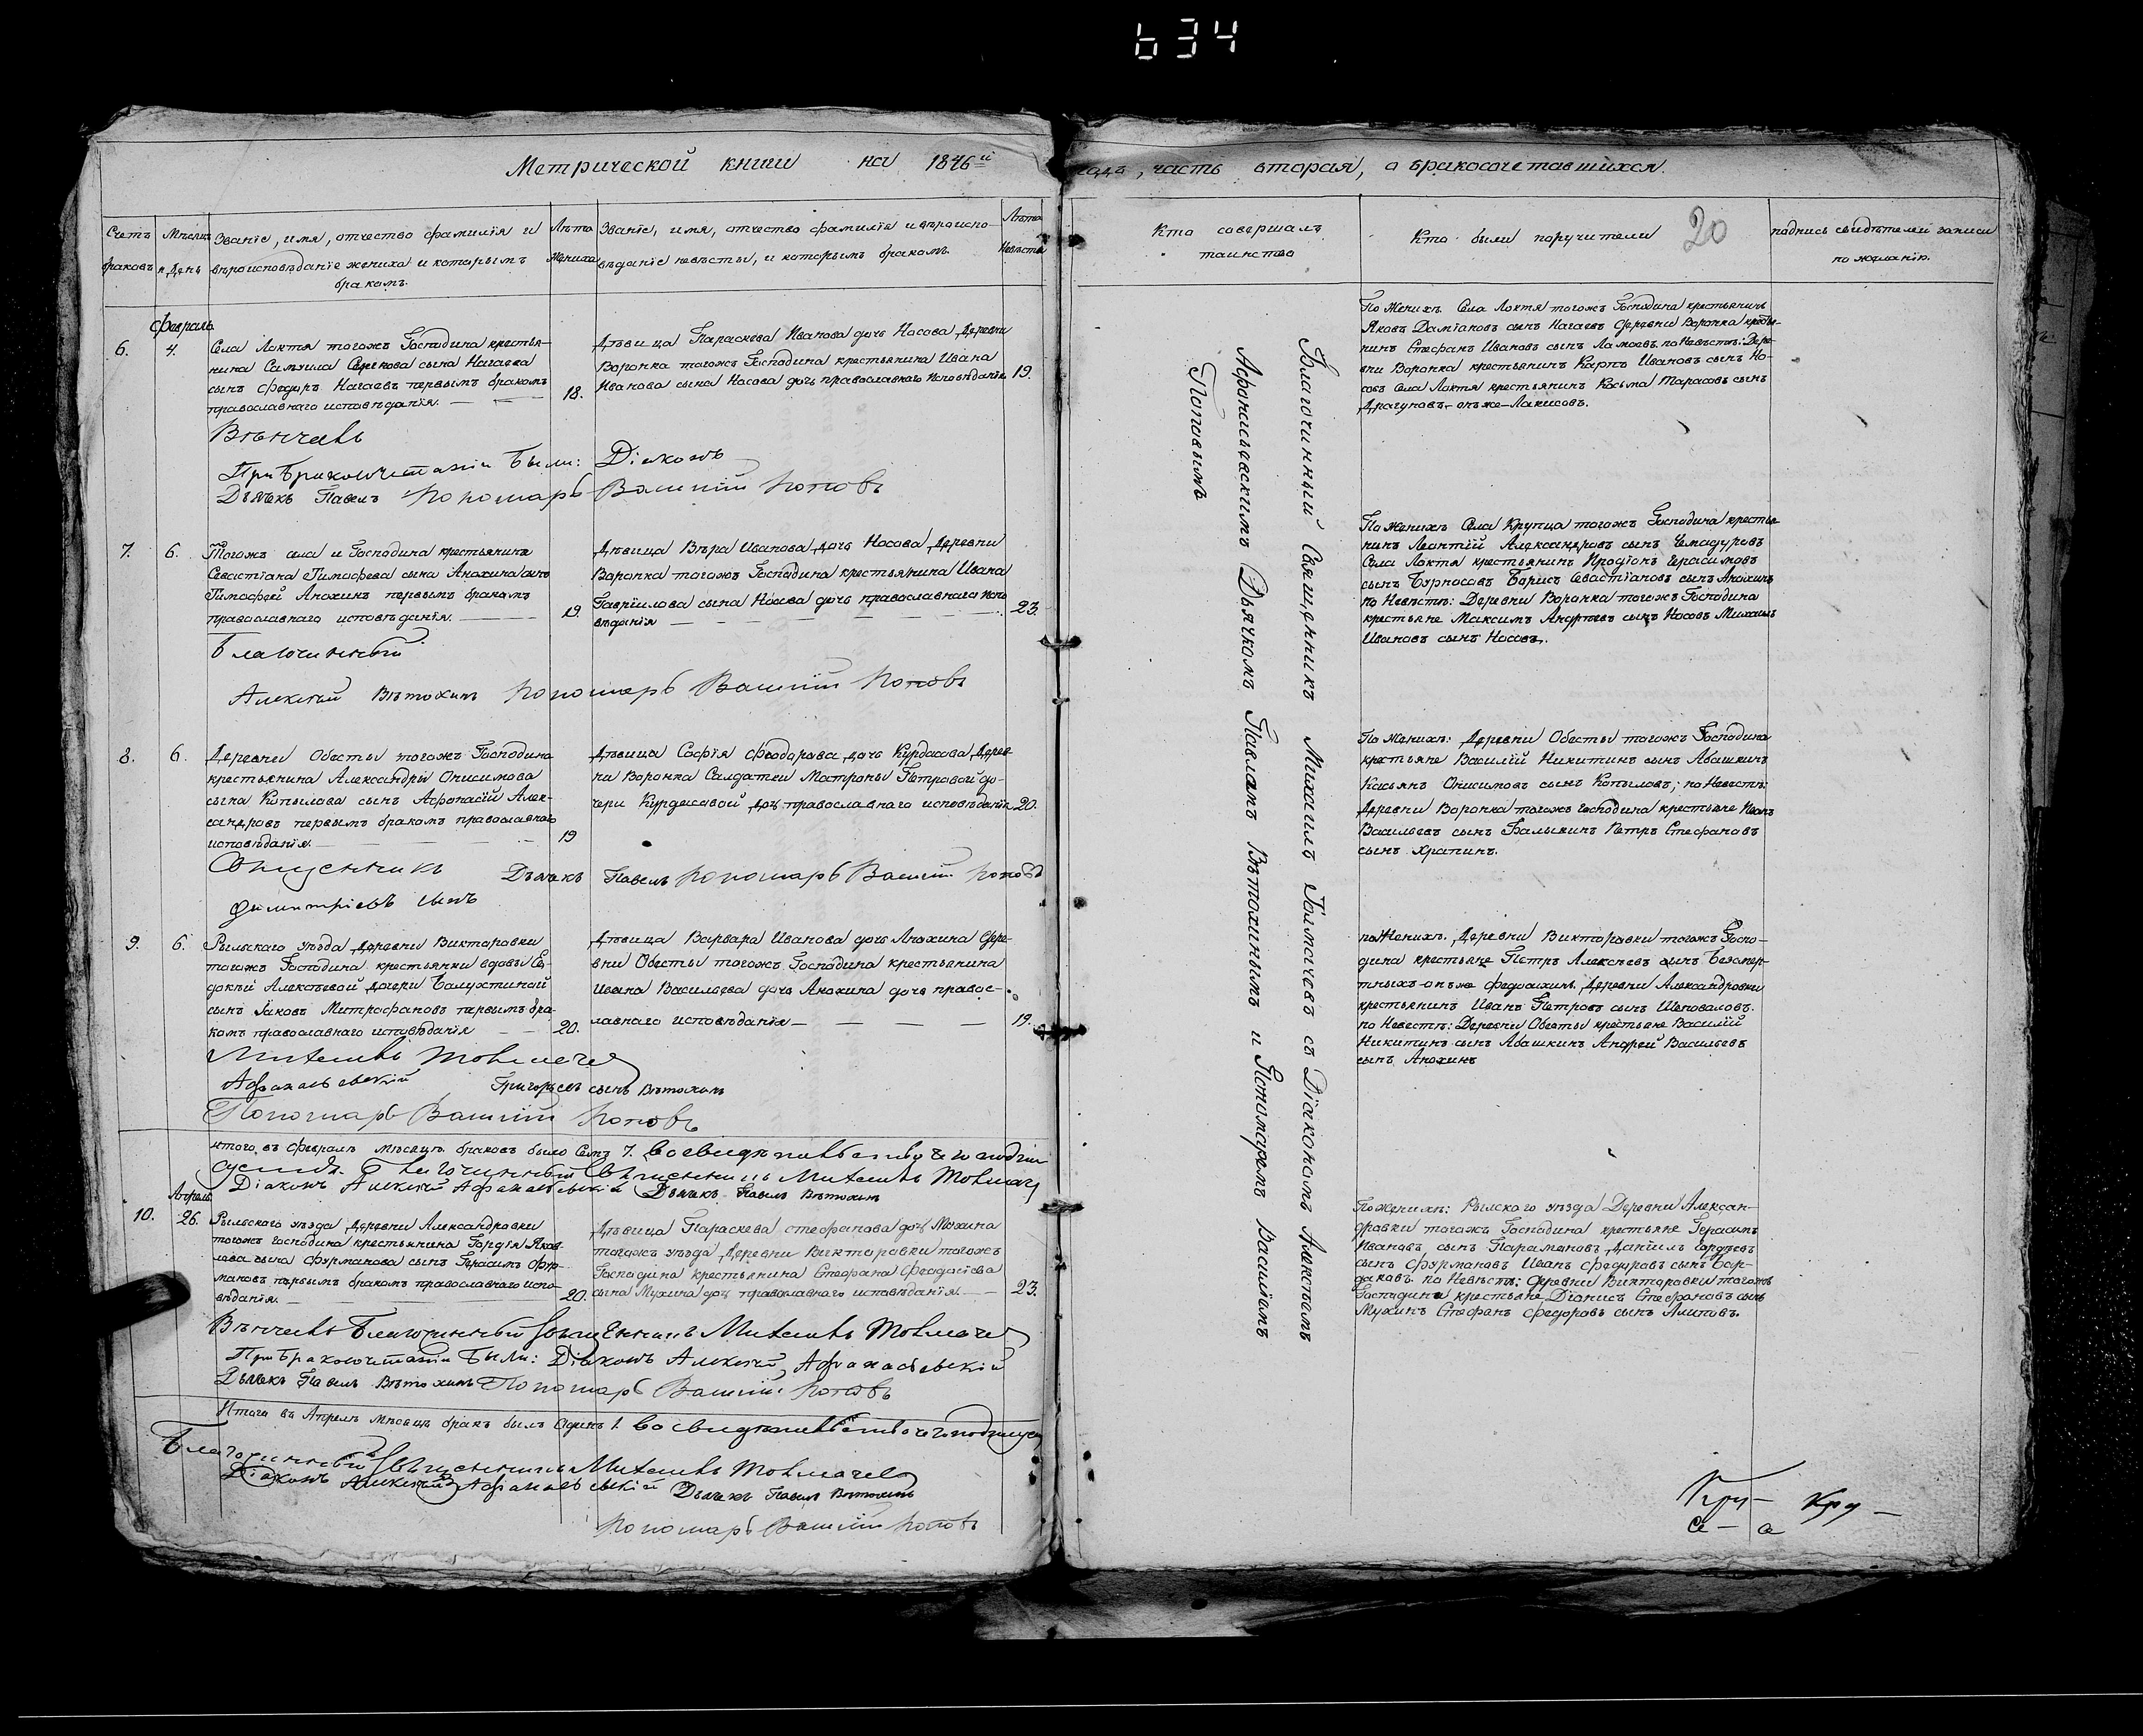 634
Метрической книги на 1846й
годъ, часть вторая, о бракосочетавшихся.
Счетъ браковъ
Мѣсяцъ и день
Званіе, имя, отчество фамилія и
вѣроисповѣданіе жениха и которымъ
бракомъ.
Лѣта
жениха
Званіе, имя, отчество фамилія и вѣроиспо-
вѣданіе невѣсты, и которымъ бракомъ.
Лѣта
невѣсты
Кто совершалъ
таинство
Кто были поручители
20
подпись свидѣтелей записи
по желанію.
Февраль
6. 4.
Села Локтя тогожъ Господина крестья-
нина Самуила сына Нагаева
сынъ Федоръ Нагаевъ первымъ бракомъ
православнаго исповѣданія.
18.
Дѣвица Параскева Иванова дочь Носова Деревни
Воронка тогожъ Господина крестьянина Ивана
Иванова сына Носова дочь православнаго исповѣданія
19.
По Женихѣ. Села Локтя тогожъ Господина крестьянинъ
Яковъ Даміановъ сынъ Нагаевъ Деревни Воронка кресть-
нинъ Стефанъ Ивановъ сынъ по Невѣстѣ: Дере-
вни Воронка крестьянинъ Карпъ Ивановъ сынъ Но-
совъ Села Локтя крестьянинъ Косьма Тарасовъ сынъ
Драгуновъ онъ же Лакисовъ.
Вѣнчалъ
При Бракосочетаніи были: Діаконъ
Дьячекъ Павелъ Пономарь Василій Поповъ
7. 6.
Тогожъ села и Господина крестьянина
Севастіана Тимофеева сына Анохина сынъ
Тимофей Анохинъ первымъ бракомъ
православнаго исповѣданія.
19.
Дѣвица Вѣра Иванова дочь Носова Деревни
Воронка тогожъ Господина крестьянина Ивана
Гавріилова сына Носова дочь православнаго испо
вѣданія
23.
По Женихѣ Села Крупца тогожъ Господина крестья
нинъ Леонтій Александровъ сынъ Чемодуровъ
Села Локтя крестьянинъ Иродіонъ Герасимовъ
сынъ Бурносовъ Борисъ Севастіановъ сынъ Анохинъ
по Невѣстѣ: Деревни Воронка тогожъ Господина
крестьяне Максимъ Андреевъ сынъ Носовъ Михаилъ
Ивановъ сынъ Носовъ.
Благочинный
Алексѣй Вѣтохинъ Пономарь Василій Поповъ
8. 6.
Деревни Обесты тогожъ Господина
крестьянина Александра Онисимова
сына Копылова сынъ Афонасій Алек-
сандровъ первымъ бракомъ православнаго
исповѣданія.
19
Дѣвица Софія Феодорова дочь Курдасова Дерев-
ни Воронка Солдатки Матроны Петровой до-
чери Курдасовой дочь православнаго исповѣданія
20.
По Женихѣ: Деревни Обесты тогожъ Господина
крестьяне Василій Никитинъ сынъ Абашкинъ
Касьянъ Онисимовъ сынъ Копыловъ; по Невѣстѣ:
Деревни Воронка тогожъ господина крестьяне Иванъ
Васильевъ сынъ Балыкинъ Петръ Стефановъ
сынъ Храпинъ.
Священникъ Дьячекъ Павелъ Пономарь Василій Поповъ
Димитріевъ сынъ
9. 6.
Рыльскаго уѣзда Деревни Викторовки
тогожъ Господина крестьянки вдовы Ев-
докіи Алексѣевой дочери Балухтиной
сынъ Іаковъ Митрофановъ первымъ бра-
комъ православнаго исповѣданія
20.
Дѣвица Варвара Иванова дочь Анохина Дере-
вни Обесты тогожъ Господина крестьянина
Ивана Васильева дочь Анохина дочь правос-
лавнаго исповѣданія
19.
по Женихѣ. Деревни Викторовки тогожъ Госпо-
дина крестьяне Петръ Алексѣевъ сынъ Безсмер-
тныхъ онъ же Федюхинъ Деревни Александровки
крестьянинъ Иванъ Петровъ сынъ Шеповаловъ.
по Невѣстѣ: Деревни Обесты крестьяне Василій
Никитинъ сынъ Абашкинъ Андрей Васильевъ
сынъ Анохинъ
Михаилъ Толмачевъ
Афанасьевскій Григорьевъ сынъ Вѣтохинъ
Пономарь Василій Поповъ
итого въ Февралѣ мѣсяцѣ браковъ было Семь 7. Во свидѣтельство чего подпи
суемся. Благочинный Священникъ Михаилъ Толмачевъ
Діаконъ Алексѣй Афанасьевскій Дьячекъ Павелъ Вѣтохинъ
Апрѣль
10. 26.
Рыльскаго уѣзда Деревни Александровки
тогожъ господина крестьянина Гордія Яков-
лева сына Фурманова сынъ Герасимъ Фур-
мановъ первымъ бракомъ православнаго испо-
вѣданія.
20.
Дѣвица Параскева стефанова дочь Мухина
тогожъ уѣзда Деревни Викторовки тогожъ
Господина крестьянина Стефана Феодосіева
сына Мухина дочь православнаго исповѣданія.
23.
По женихѣ: Рылскаго уѣзда Деревни Алексан-
дровки тогожъ Господина крестьяне Герасимъ
Ивановъ сынъ Парамоновъ Даніилъ Гордѣевъ
сынъ Фурмановъ Иванъ Федоровъ сынъ Бор-
даковъ по Невѣстѣ: Деревни Викторовки тогожъ
Господина крестьяне Діонисъ Стефановъ сынъ
Мухинъ Стефанъ Федоровъ сынъ Алиповъ.
Вѣнчалъ Благочинный Священникъ Михаилъ Толмачевъ
При Бракосочетаніи Были: Діаконъ Алексѣй Афанасьевскій
Дьячекъ Павелъ Вѣтохинъ Пономарь Василій Поповъ
Итого въ Апрелѣ Мѣсяцѣ бракъ былъ Одинъ 1. Во свидѣтельство чего подпишуемся
Благочинный Священникъ Михаилъ Толмачевъ
Діаконъ Алексѣй Афанасьевскій Дьячекъ Павелъ Вѣтохинъ
Пономарь Василій Поповъ
Благочинный Священникъ Михаилъ Толмачевъ съ Діакономъ Алексѣемъ
Афонасьевскимъ Дьячкомъ Павломъ Вѣтохинымъ и Пономаремъ Василіемъ
Поповымъ
Кру- Кру-
са- а